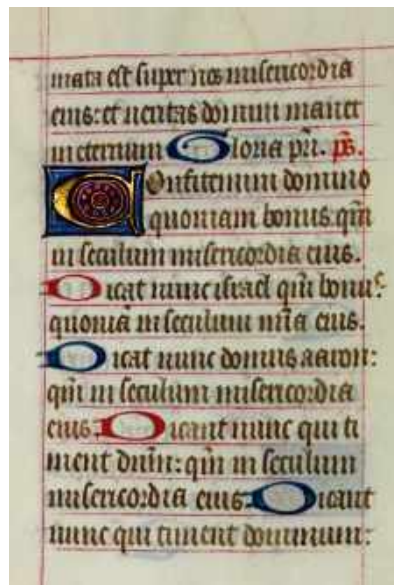 mata est super nos misericordia
eius: et ueritas domini manet
in eternum Gloria pri. ps.
Confitemini domino
quoniam bonus qm
in seculum misericordia eius.
Dicat nunc israel qm bonus
quoniā in seculum mīa eius.
Dicat nunc domus aaron:
qm in seculum misericordia
eius: Dicant nunc qui ti
ment dnm: qm in seculum
misericordia eius: Dicant
nunc qui timent dominum: